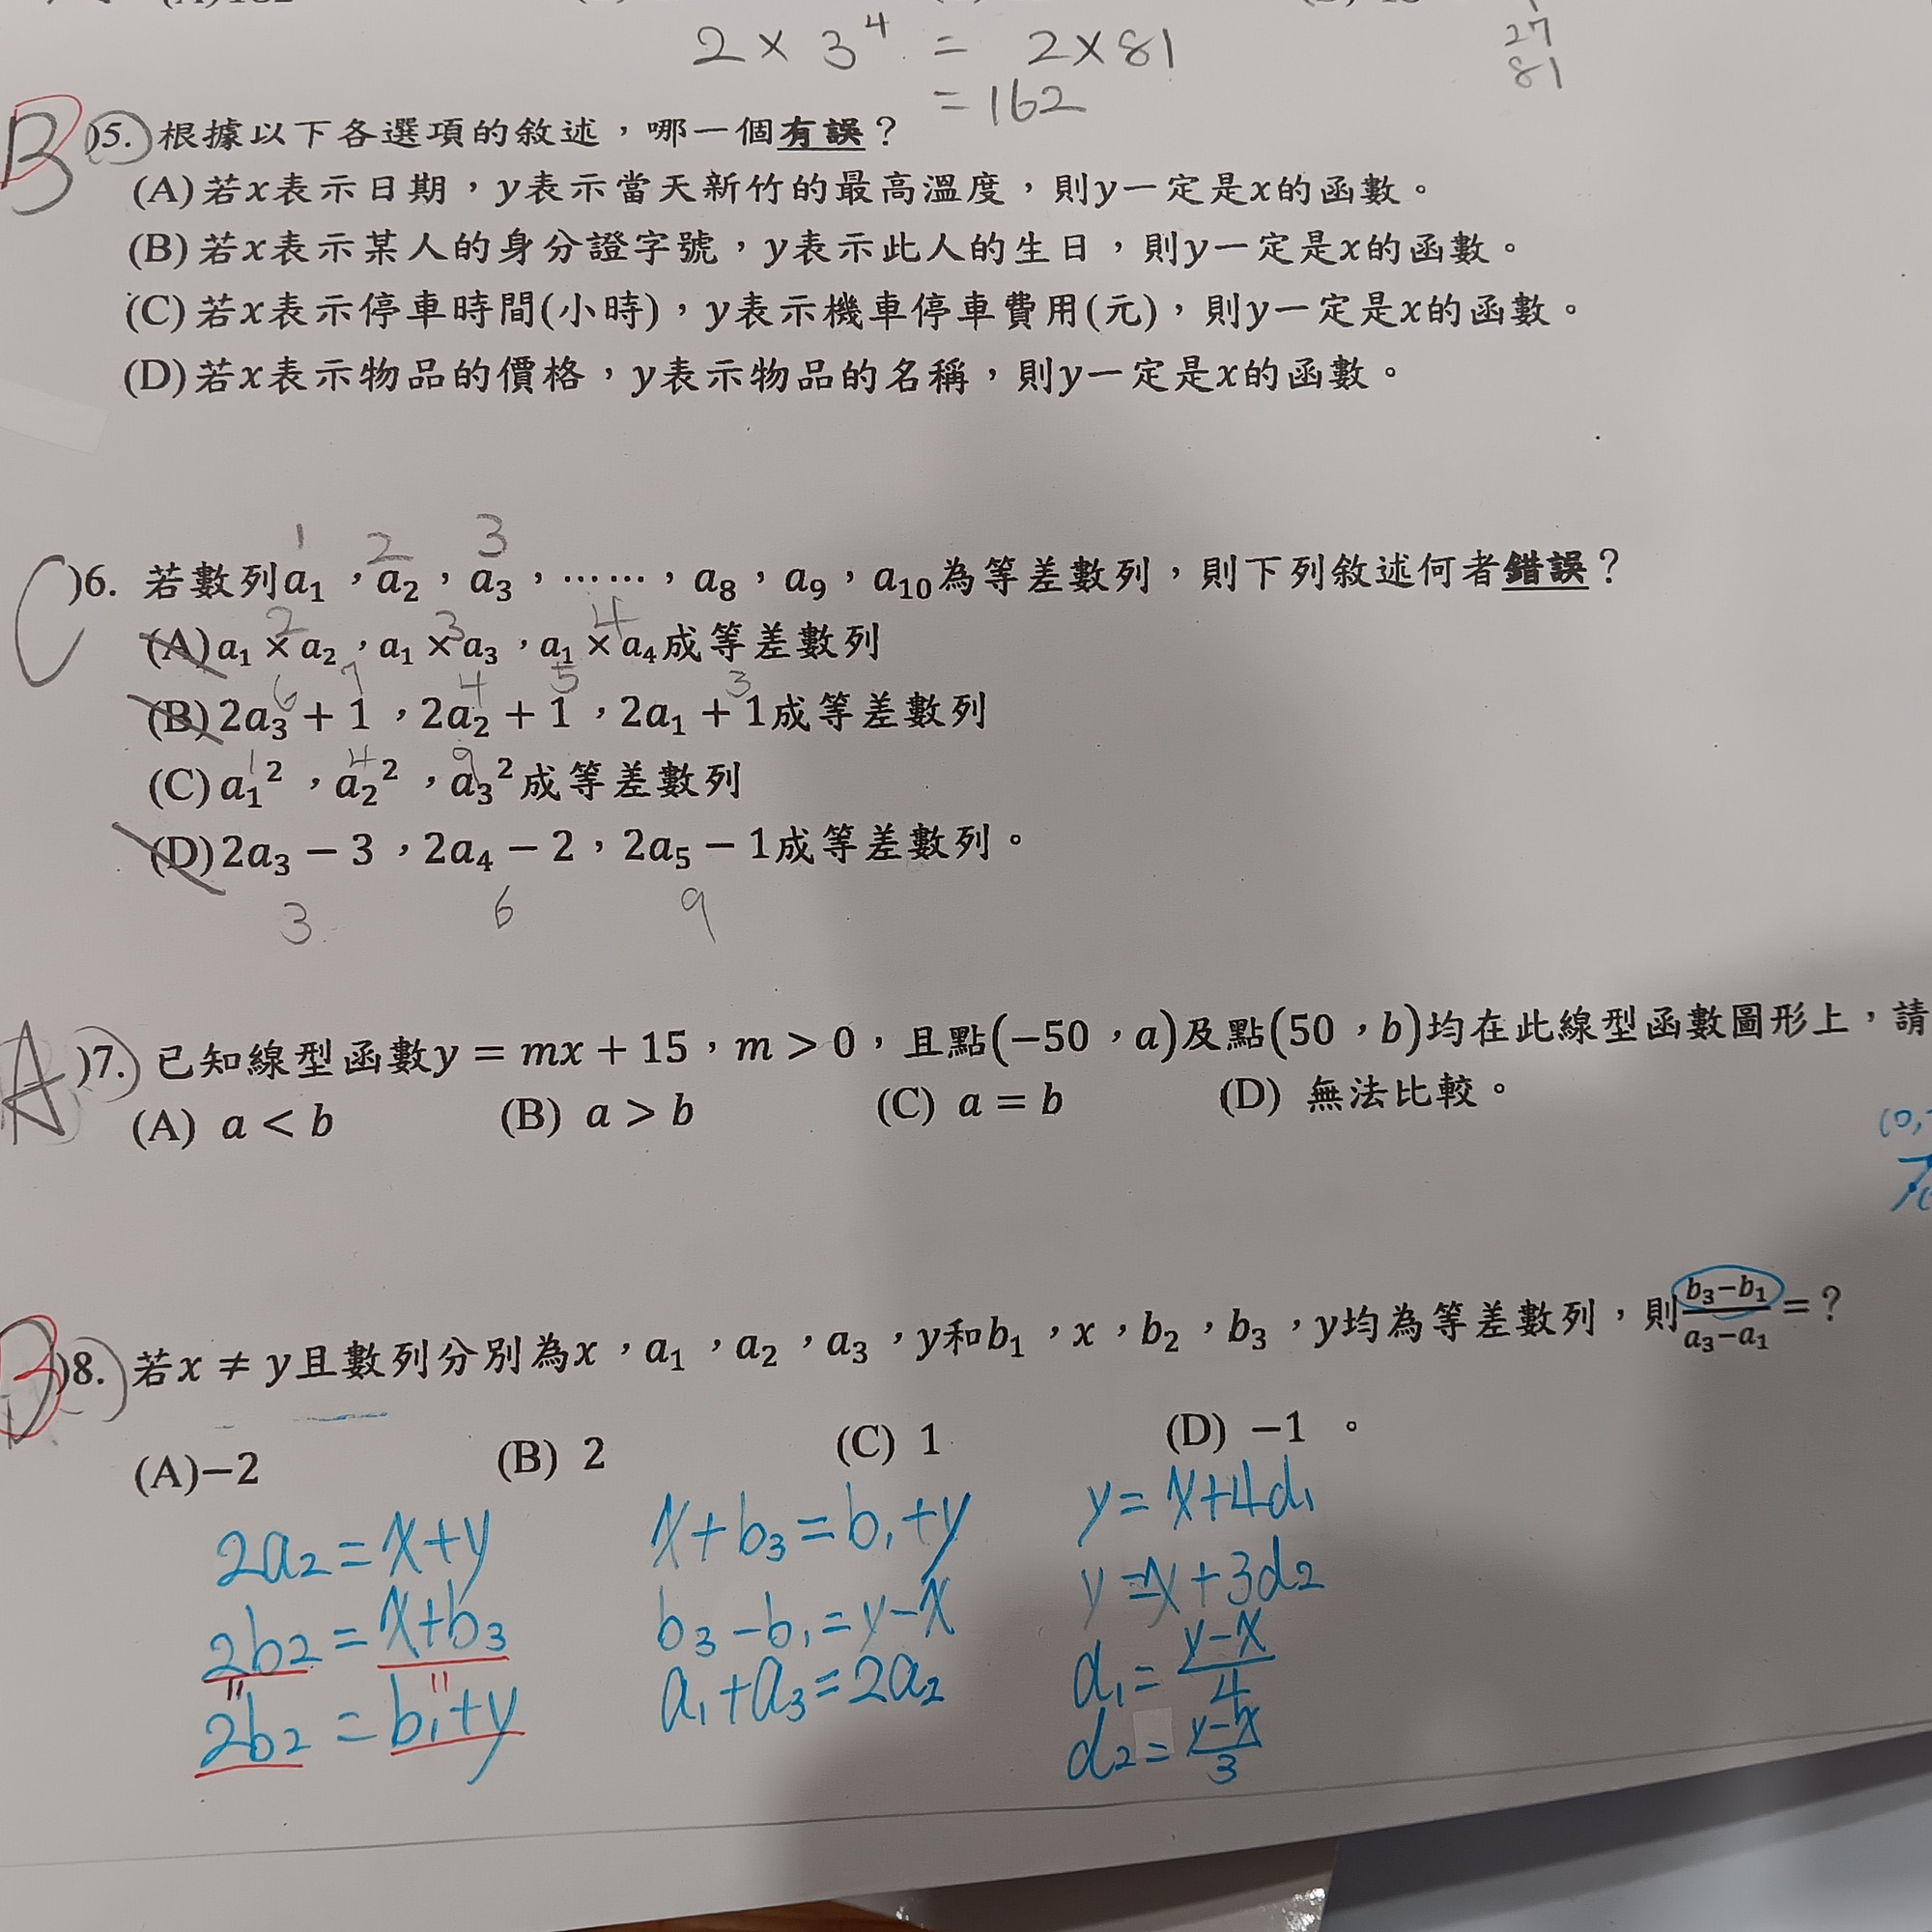 2 × 3⁴ = 2×81
= 162
27
81
B )5. 根據以下各選項的敘述，哪一個有誤？
(A)若x表示日期，y表示當天新竹的最高溫度，則y一定是x的函數。
(B)若x表示某人的身分證字號，y表示此人的生日，則y一定是x的函數。
(C)若x表示停車時間(小時)，y表示機車停車費用(元)，則y一定是x的函數。
(D)若x表示物品的價格，y表示物品的名稱，則y一定是x的函數。
1 2 3
C )6. 若數列a₁，a₂，a₃，……，a₈，a₉，a₁₀為等差數列，則下列敘述何者錯誤？
2 3 4
(A)a₁ × a₂，a₁ × a₃，a₁ × a₄成等差數列
6 7 4 5 3
(B)2a₃ + 1，2a₂ + 1，2a₁ + 1成等差數列
1 4 9
(C)a₁²，a₂²，a₃²成等差數列
(D)2a₃ − 3，2a₄ − 2，2a₅ − 1成等差數列。
3 6 9
A )7. 已知線型函數y = mx + 15，m > 0，且點(−50，a)及點(50，b)均在此線型函數圖形上，請
(A) a < b (B) a > b (C) a = b (D) 無法比較。
(0,
B )8. 若x ≠ y且數列分別為x，a₁，a₂，a₃，y和b₁，x，b₂，b₃，y均為等差數列，則(b₃−b₁)/(a₃−a₁)=？
(A)−2 (B) 2 (C) 1 (D) −1 。
2a₂=x+y x+b₃=b₁+y y=x+4d₁
2b₂=x+b₃ b₃−b₁=y−x y=x+3d₂
2b₂=b₁+y a₁+a₃=2a₂ d₁=(y−x)/4
d₂=(y−x)/3